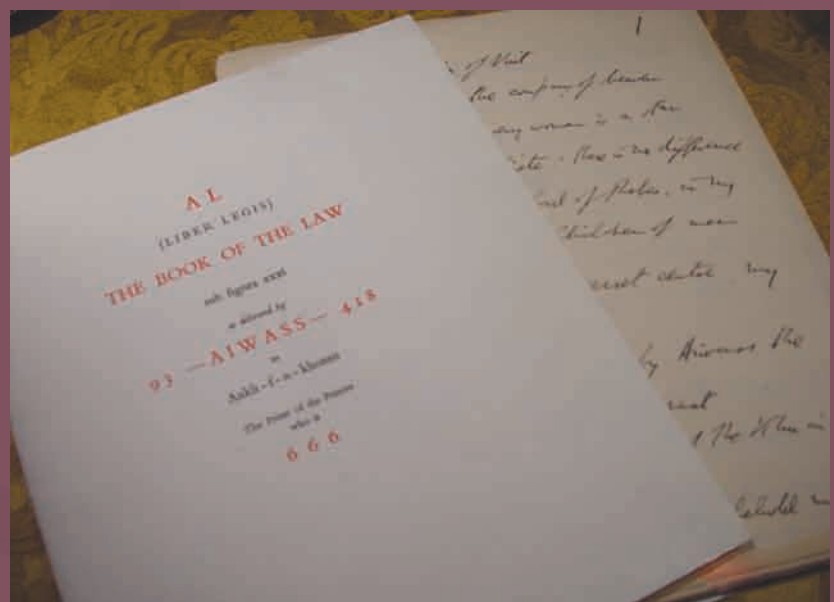 AL
(LIBER LEGIS)
THE BOOK OF THE LAW
sub figura xxxi
as delivered by
93 — AIWASS — 418
to
Ankh-f-n-khonsu
The Priest of the Princes
who is
6 6 6
1
of Nuit
the company of heaven
woman is a star
there is no difference
of Thebes, in my
Children of men
secret centre my
by Aiwass the
the
behold